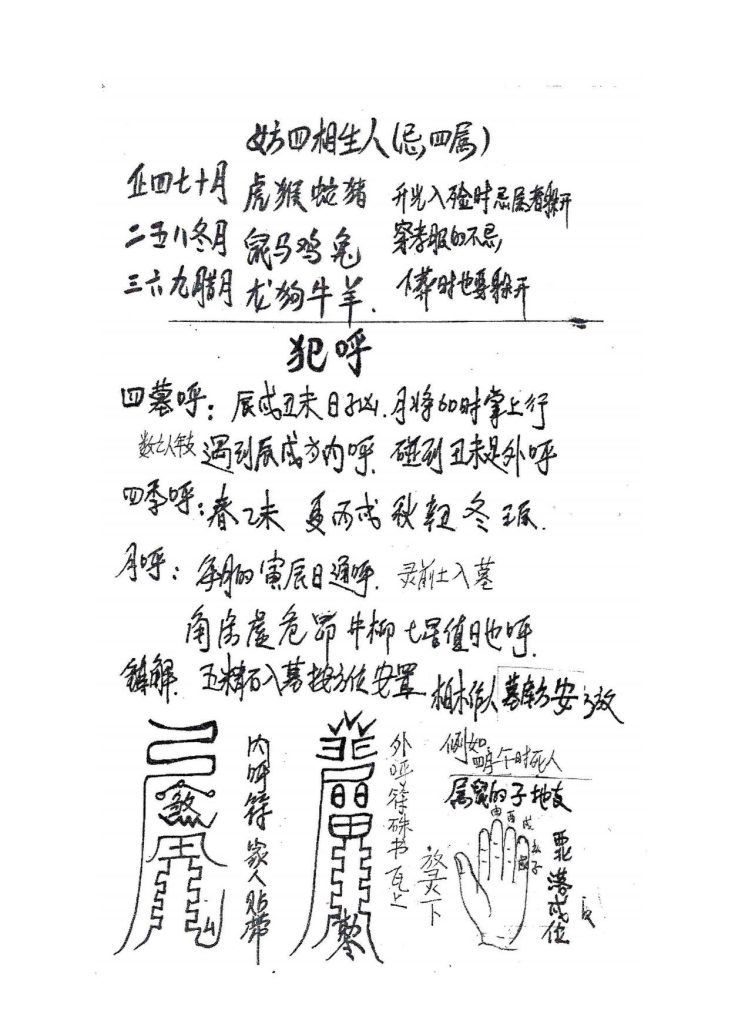 妨四相生人(忌四属)
正四七十月 虎猴蛇猪 开光入殓时忌属者躲开
二五八冬月 鼠马鸡兔 穿孝服的不忌
三六九腊月 龙狗牛羊. 下葬时也要躲开
犯呼
四墓呼: 辰戌丑未日子凶. 月将60时掌上行
遇到辰戌为内呼. 碰到丑未是外呼
四季呼: 春乙未 夏丙戌 秋辛丑 冬壬辰.
月呼: 每月的寅辰日通呼. 灵前土入墓
角房虚危昴牛柳七星值日也呼.
镇解. 五精石入墓按方位安置 柏木人 墓库方安
内呼符 家人贴带
外呼符硃书瓦上
放灵下
例如
属鼠的子地支
煞
落戌位